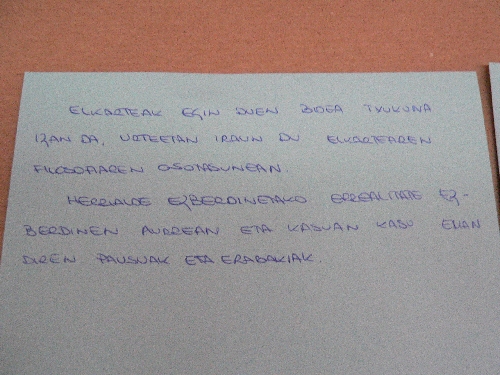 ELKARTEAK EGIN DUEN BIDEA TXUKUNA
IZAN DA, URTEETAN IRAUN DU ELKARTEAREN
FILOSOFIAREN OSOTASUNEAN.
HERRIALDE EZBERDINETAKO ERREALITATE EZ-
BERDINEN AURREAN ETA KASUAN KASU EMAN
DIREN PAUSUAK ETA ERABAKIAK.